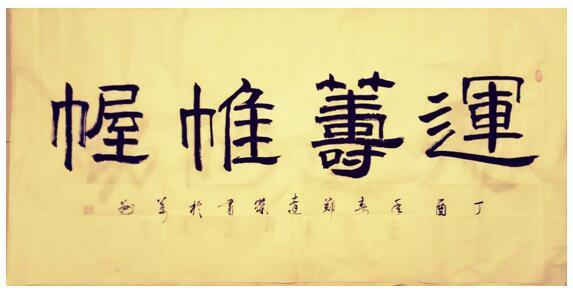 運籌帷幄
丁酉年春郑達書於